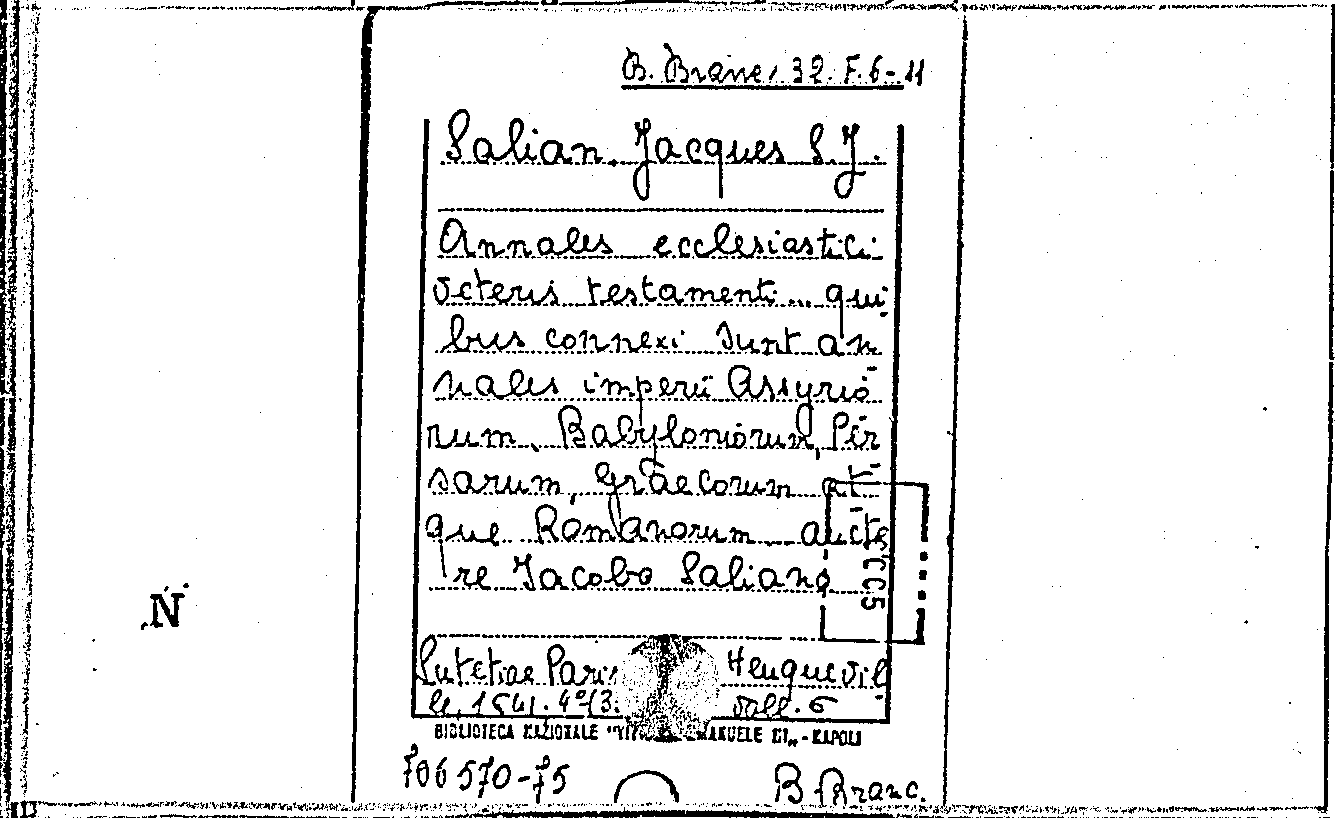 B. Branc. 32. F. 6-11
Salian. Jacques S.J.
Annales ecclesiastici
veteris testamenti... qui
bus connexi sunt an
nales imperii Assyrio
rum, Babyloniorum, Per
sarum, Graecorum at
que Romanorum aucto
re Jacobo Saliano
CC5
Lutetiae Paris Heuquevil
le, 1641. 4º (3. voll. 6
BIBLIOTECA NAZIONALE "VI MANUELE III" - NAPOLI
706570-75 B Branc.
N